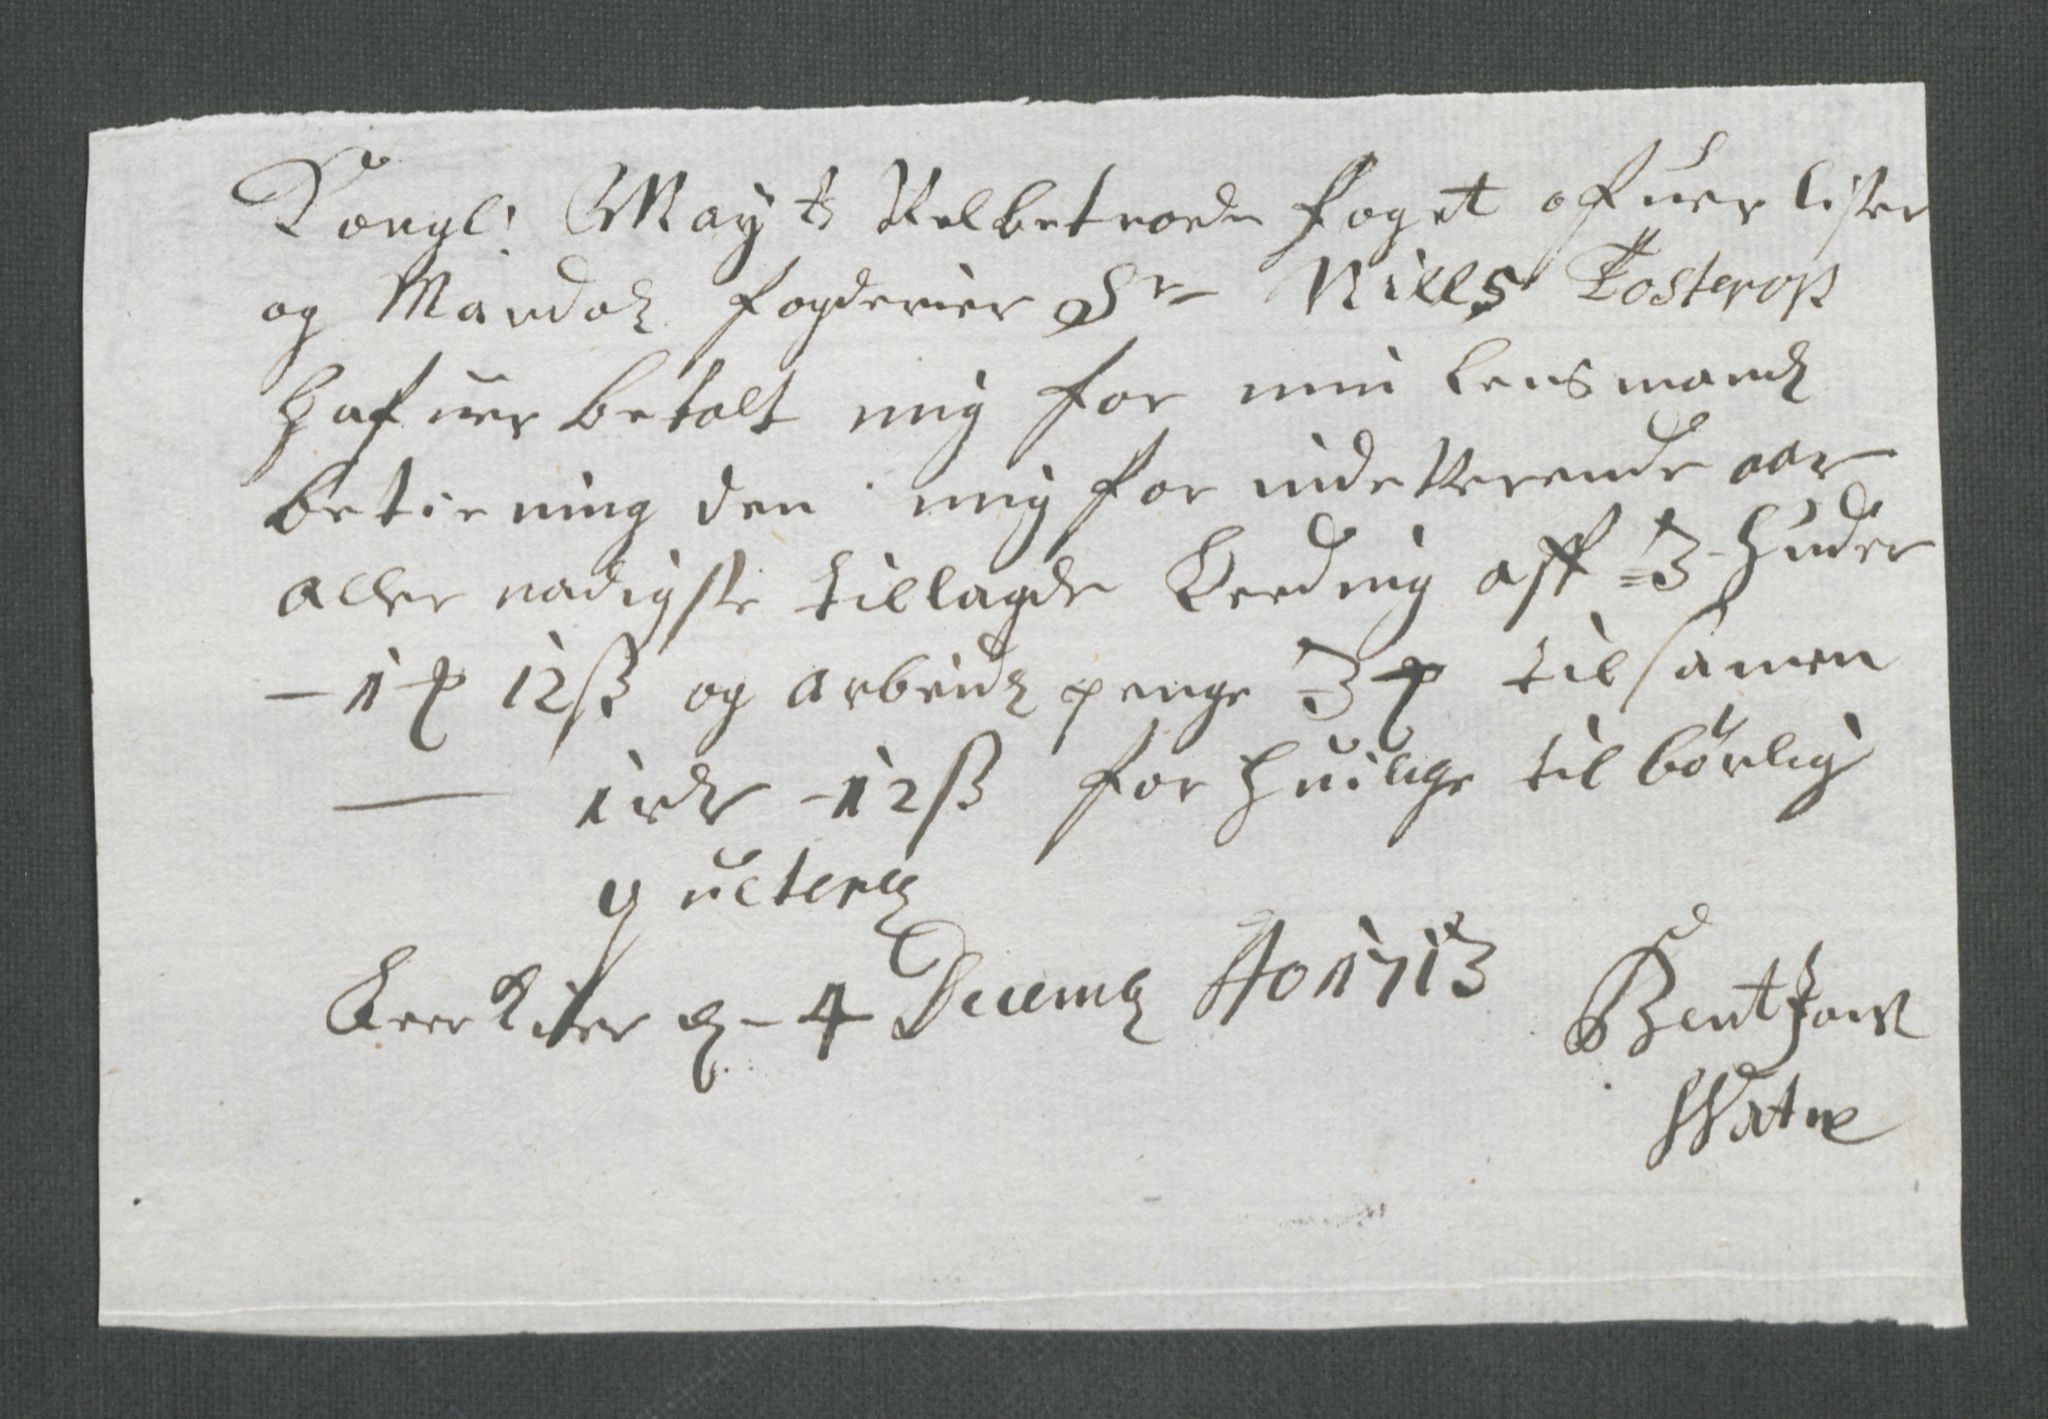 Kongl: May ts Velbetrode foget ofuer lister
og Mandals fogderier Sr Nills Tosterop
hafuer betalt mig for min lensmands
betiening den mig for indeverende aar
aller nadigste tillagde Leeding aff 3 huder
- 1 12ß og arbeids penge 3 til samen
— 1 rdr 12ß for huilige til børlig
quiterer
d - 4 Decemb Ao 1713 Bent
Watne